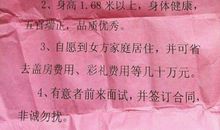 2、身高1.68米以上，身体健康，
五官端正，品质优秀。
3、自愿到女方家庭居住，并可省
去盖房费用、彩礼费用等几十万元。
4、有意者前来面试，并签订合同，
非诚勿扰。